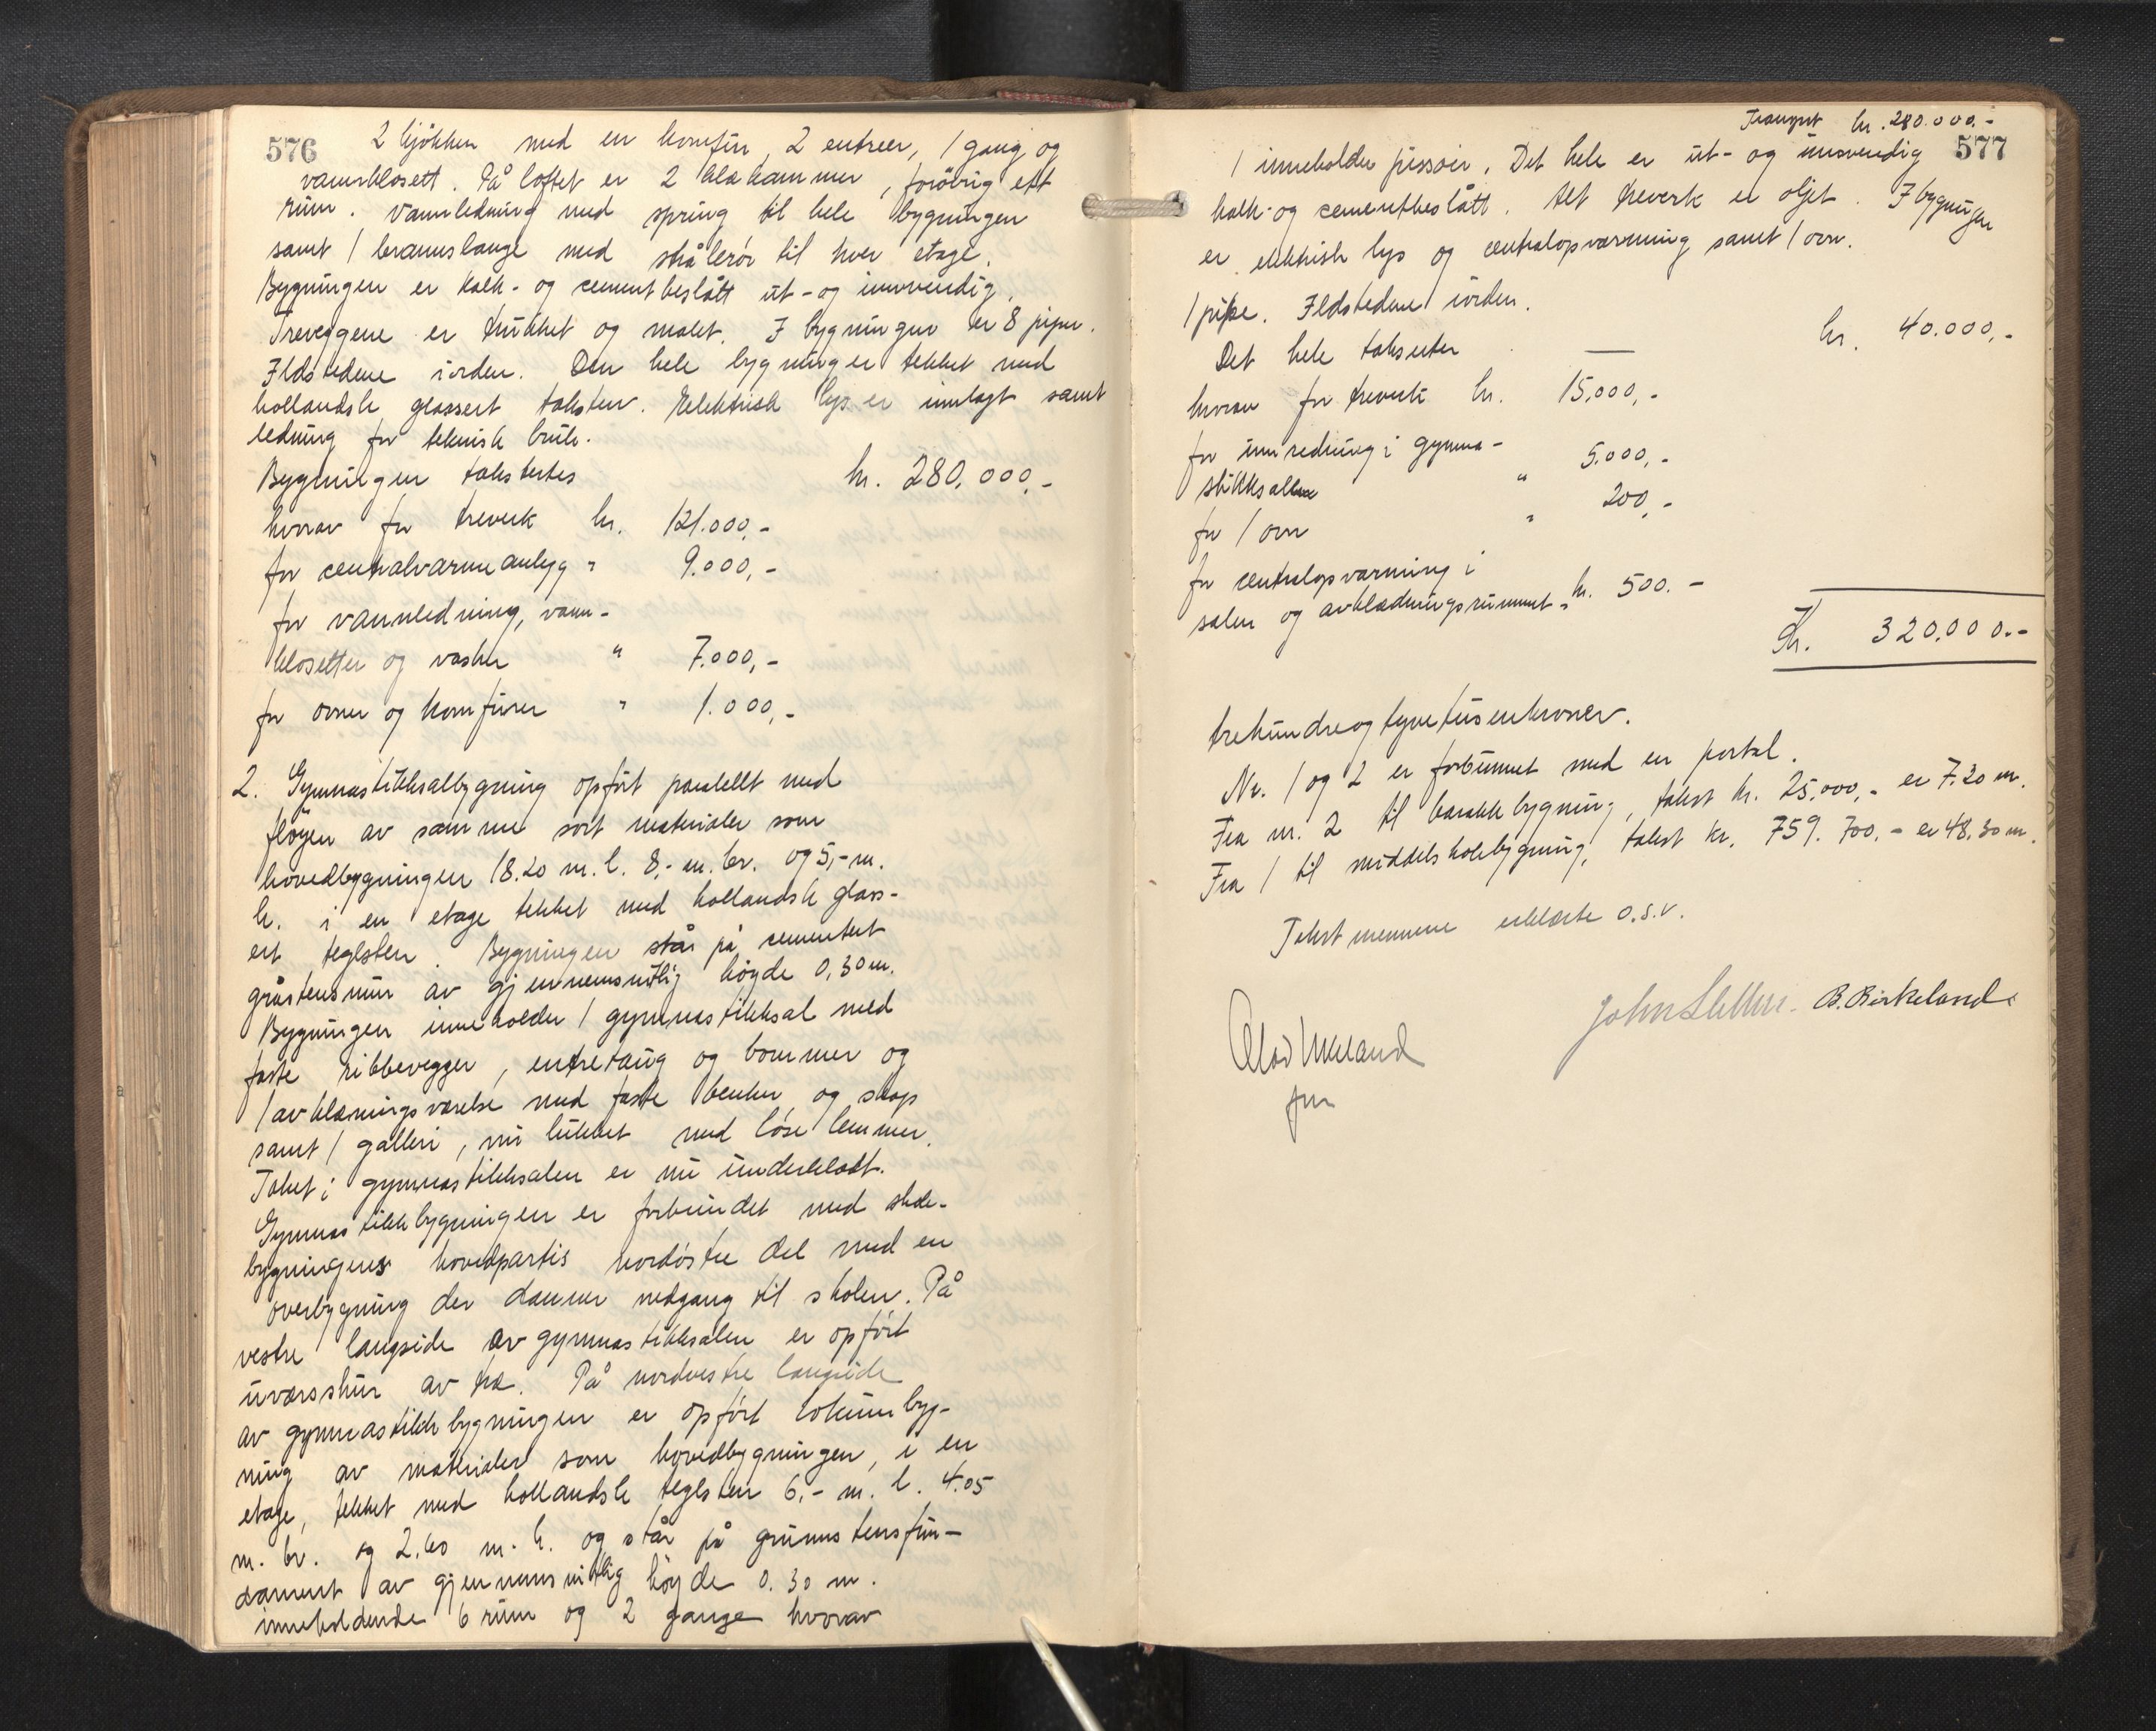 576
2 kjökken med en komfür, 2 entreer, 1 gang og
vannklosett. På loftet er 2 klækammer, forövrig ett
rüm. Vannledning med spring til hele bygningen
samt 1 brannslange med strålerör til hver etage.
Bygningen er kalk- og cementbeslått üt- og innvendig.
Treveggene er trükket og malet. I bygningen er 8 piper.
Ildstedene iorden. Den hele bygning er tekket med
hollandsk glassert taksten. Elektrisk lys er innlagt samt
ledning for teknisk brük.
Bygningen takstertes kr. 280.000,-
hvorav for treverk kr. 121.000,-
for centralvarmeanlegg " 9.000,-
for vannledning, vann-
klosetter og vasker " 7.000,-
for ovner og komfürer " 1.000,-
2. Gymnastikksalbygning opfört paralellt med
flöyen av samme sort materialer som
hovedbygningen 18.20 m. l. 8,- m. br. og 5,- m.
h. i en etage tekket med hollandsk glass-
ert teglsten. Bygningen står på cementert
gråstensmür av gjennemsnitlig höyde 0,30 m.
Bygningen inneholder 1 gymnastikksal med
faste ribbevegger, entretaug og bommer og
1 avklædningsværelse med faste benker og skap
samt 1 galleri, nü lükket med löse lemmer.
Taket i gymnastikksalen er nü ünderklædt.
Gymnastikkbygningen er forbündet med skole-
bygningens hovedpartis nordöstre del med en
overbygning der danner nedgang til skolen. På
vestre langside av gymnastikksalen er opfört
üværsskür av tre. På nordvestre langside
av gymnastikkbygningen er opfört lokümbyg-
ning av materialer som hovedbygningen, i en
etage, tekket med hollandsk teglsten 6,- m. l. 4.05
m. br. og 2.60 m. h. og står på grünnstensfün-
dament av gjennemsnitlig höyde 0.30 m.
inneholdende 6 rüm og 2 gange hvorav
Transport kr. 280.000.-
577
1 inneholder pissoir. Det hele er üt- og innvendig
kalk- og cementbeslått. Alt treverk er oljet. I bygningen
er elektrisk lys og centralopvarmning samt 1 ovn.
1 pipe. Ildstedene iorden.
Det hele taksertes — kr. 40.000,-
hvorav for treverk kr. 15.000,-
for innredning i gymna-
stikksalen " 5.000,-
for 1 ovn " 200,-
for centralopvarmning i
salen og avklædningsrümmet " kr. 500.-
Kr. 320.000.-
trehündreogtyvetüsenkroner.
Nr. 1 og 2 er forbünnet med en portal.
Fra nr. 2 til barakkbygning, takst kr. 25.000,- er 7.20 m.
Fra 1 til middelskolebygning, takst kr. 759.700,- er 48.30 m.
Takstmennene erklærte o.s.v.
John B. Birkeland